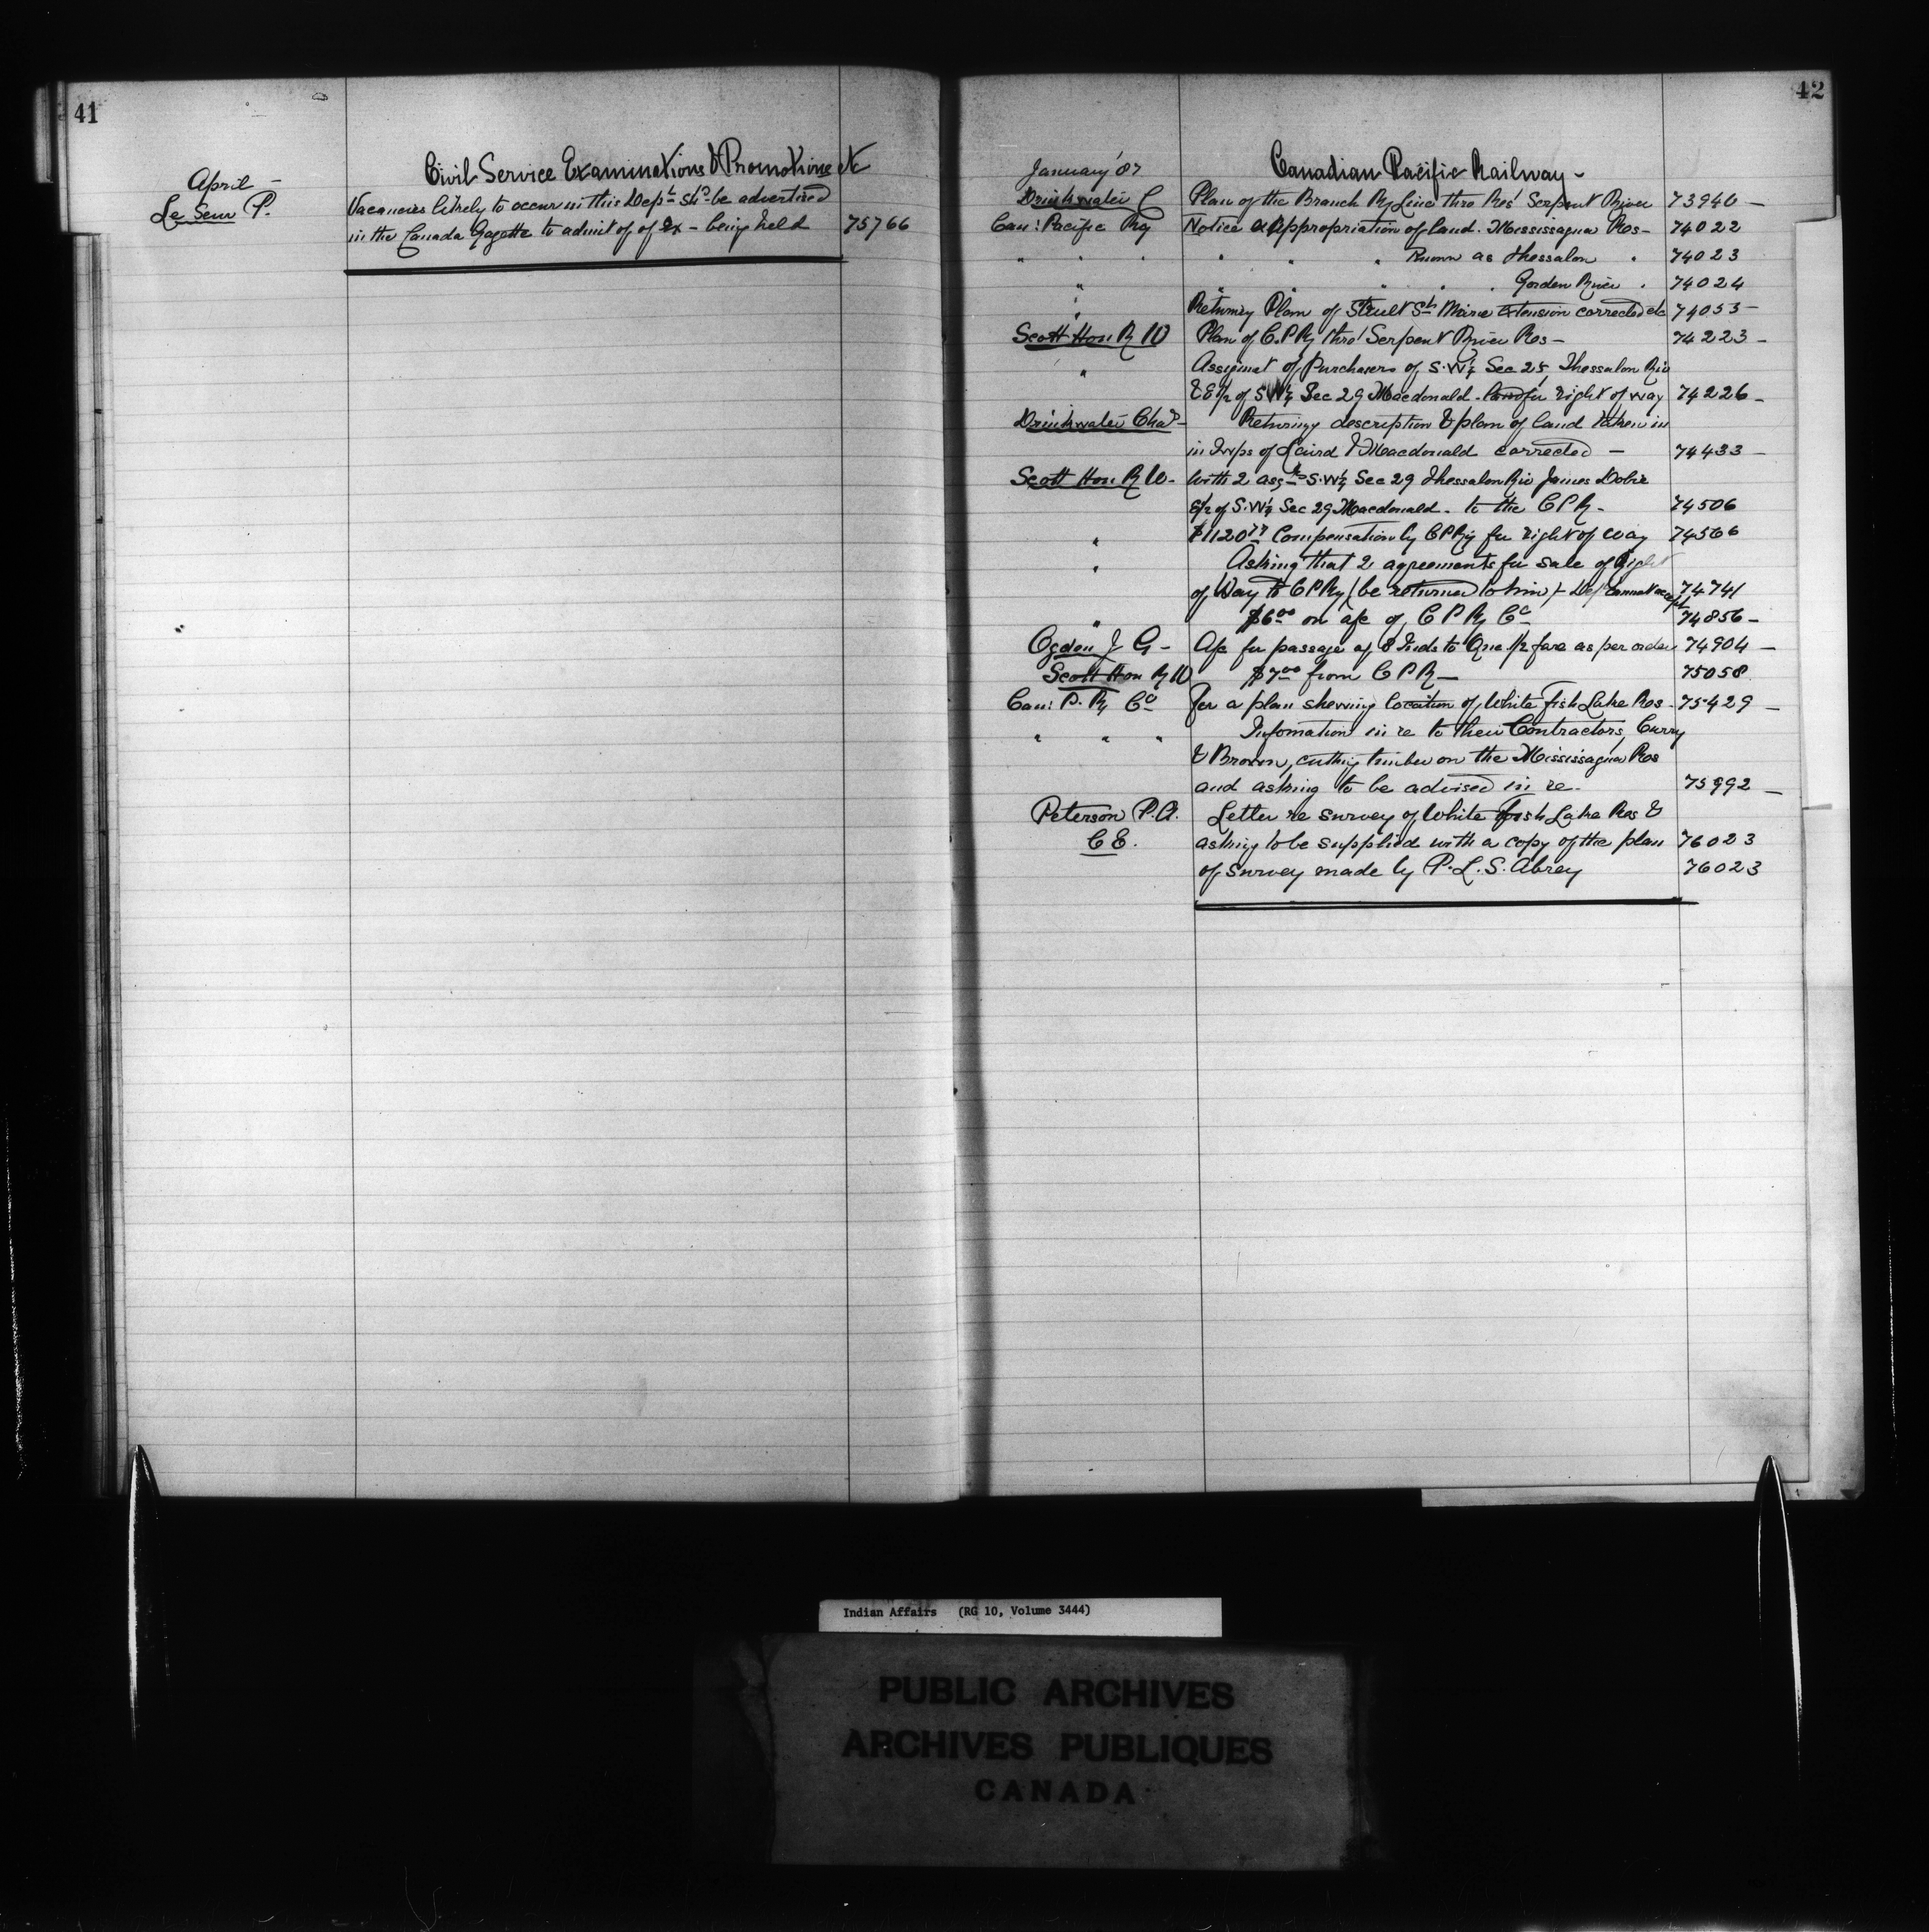 41
Civil Service Examinations & Promotions etc
April -
Le Seur P.
Vacancies likely to occur in this Dept shd be advertised
in the Canada Gazette to admit of of Ex - being held 75766
42
January '87
Canadian Pacific Railway -
Drinkwater C Plan of the Branch Ry Line thro Res' Serpent River 73940 -
Can: Pacific Ry Notice of Appropriation of land. Mississagua Res - 74022
" " " " " " Known as Thessalon " 74023
" " " " " Gorden River " 74024
" Returning Plan of Sault St Marie Extension corrected etc 74053 -
Scott Hon R W Plan of C.P.Ry thro' Serpent River Res - 74223 -
" Assignmt of Purchasers of S.W¼ Sec 25, Thessalon Riv
& E½ of SW¼ Sec 29 Macdonald - for right of way 74226 -
Drinkwater Chas - Returning description & plan of land taken in
in Twps of Laird & Macdonald corrected - 74433 -
Scott Hon R W - With 2 assts S.W¼ Sec 29 Thessalon Riv James Dobie
E½ of S.W¼ Sec 29 Macdonald - to the C P R - 74506
" $1120 Compensation by C P Ry for right of way 74566
" Asking that 2 agreements for sale of Right
of Way to C P Ry (be returned to him) - Dept cannot accept 74741
" $6.00 on a/c of C P Ry Co 74856 -
Ogden J G - A/c for passage of 8 Inds to One 1/2 fare as per order 74904 -
Scott Hon R W $7.00 from C P R - 75058
Can: P. Ry Co For a plan shewing location of White fish Lake Res - 75429 -
" " " Infomation in re to their Contractors, Curry
& Brown, cutting timber on the Mississagua Res
and asking to be advised in re. 75992 -
Peterson P.A. Letter re survey of White fish Lake Res &
C E. asking to be supplied with a copy of the plan 76023
of survey made by P.L.S. Abrey 76023
Indian Affairs (RG 10, Volume 3444)
PUBLIC ARCHIVES
ARCHIVES PUBLIQUES
CANADA